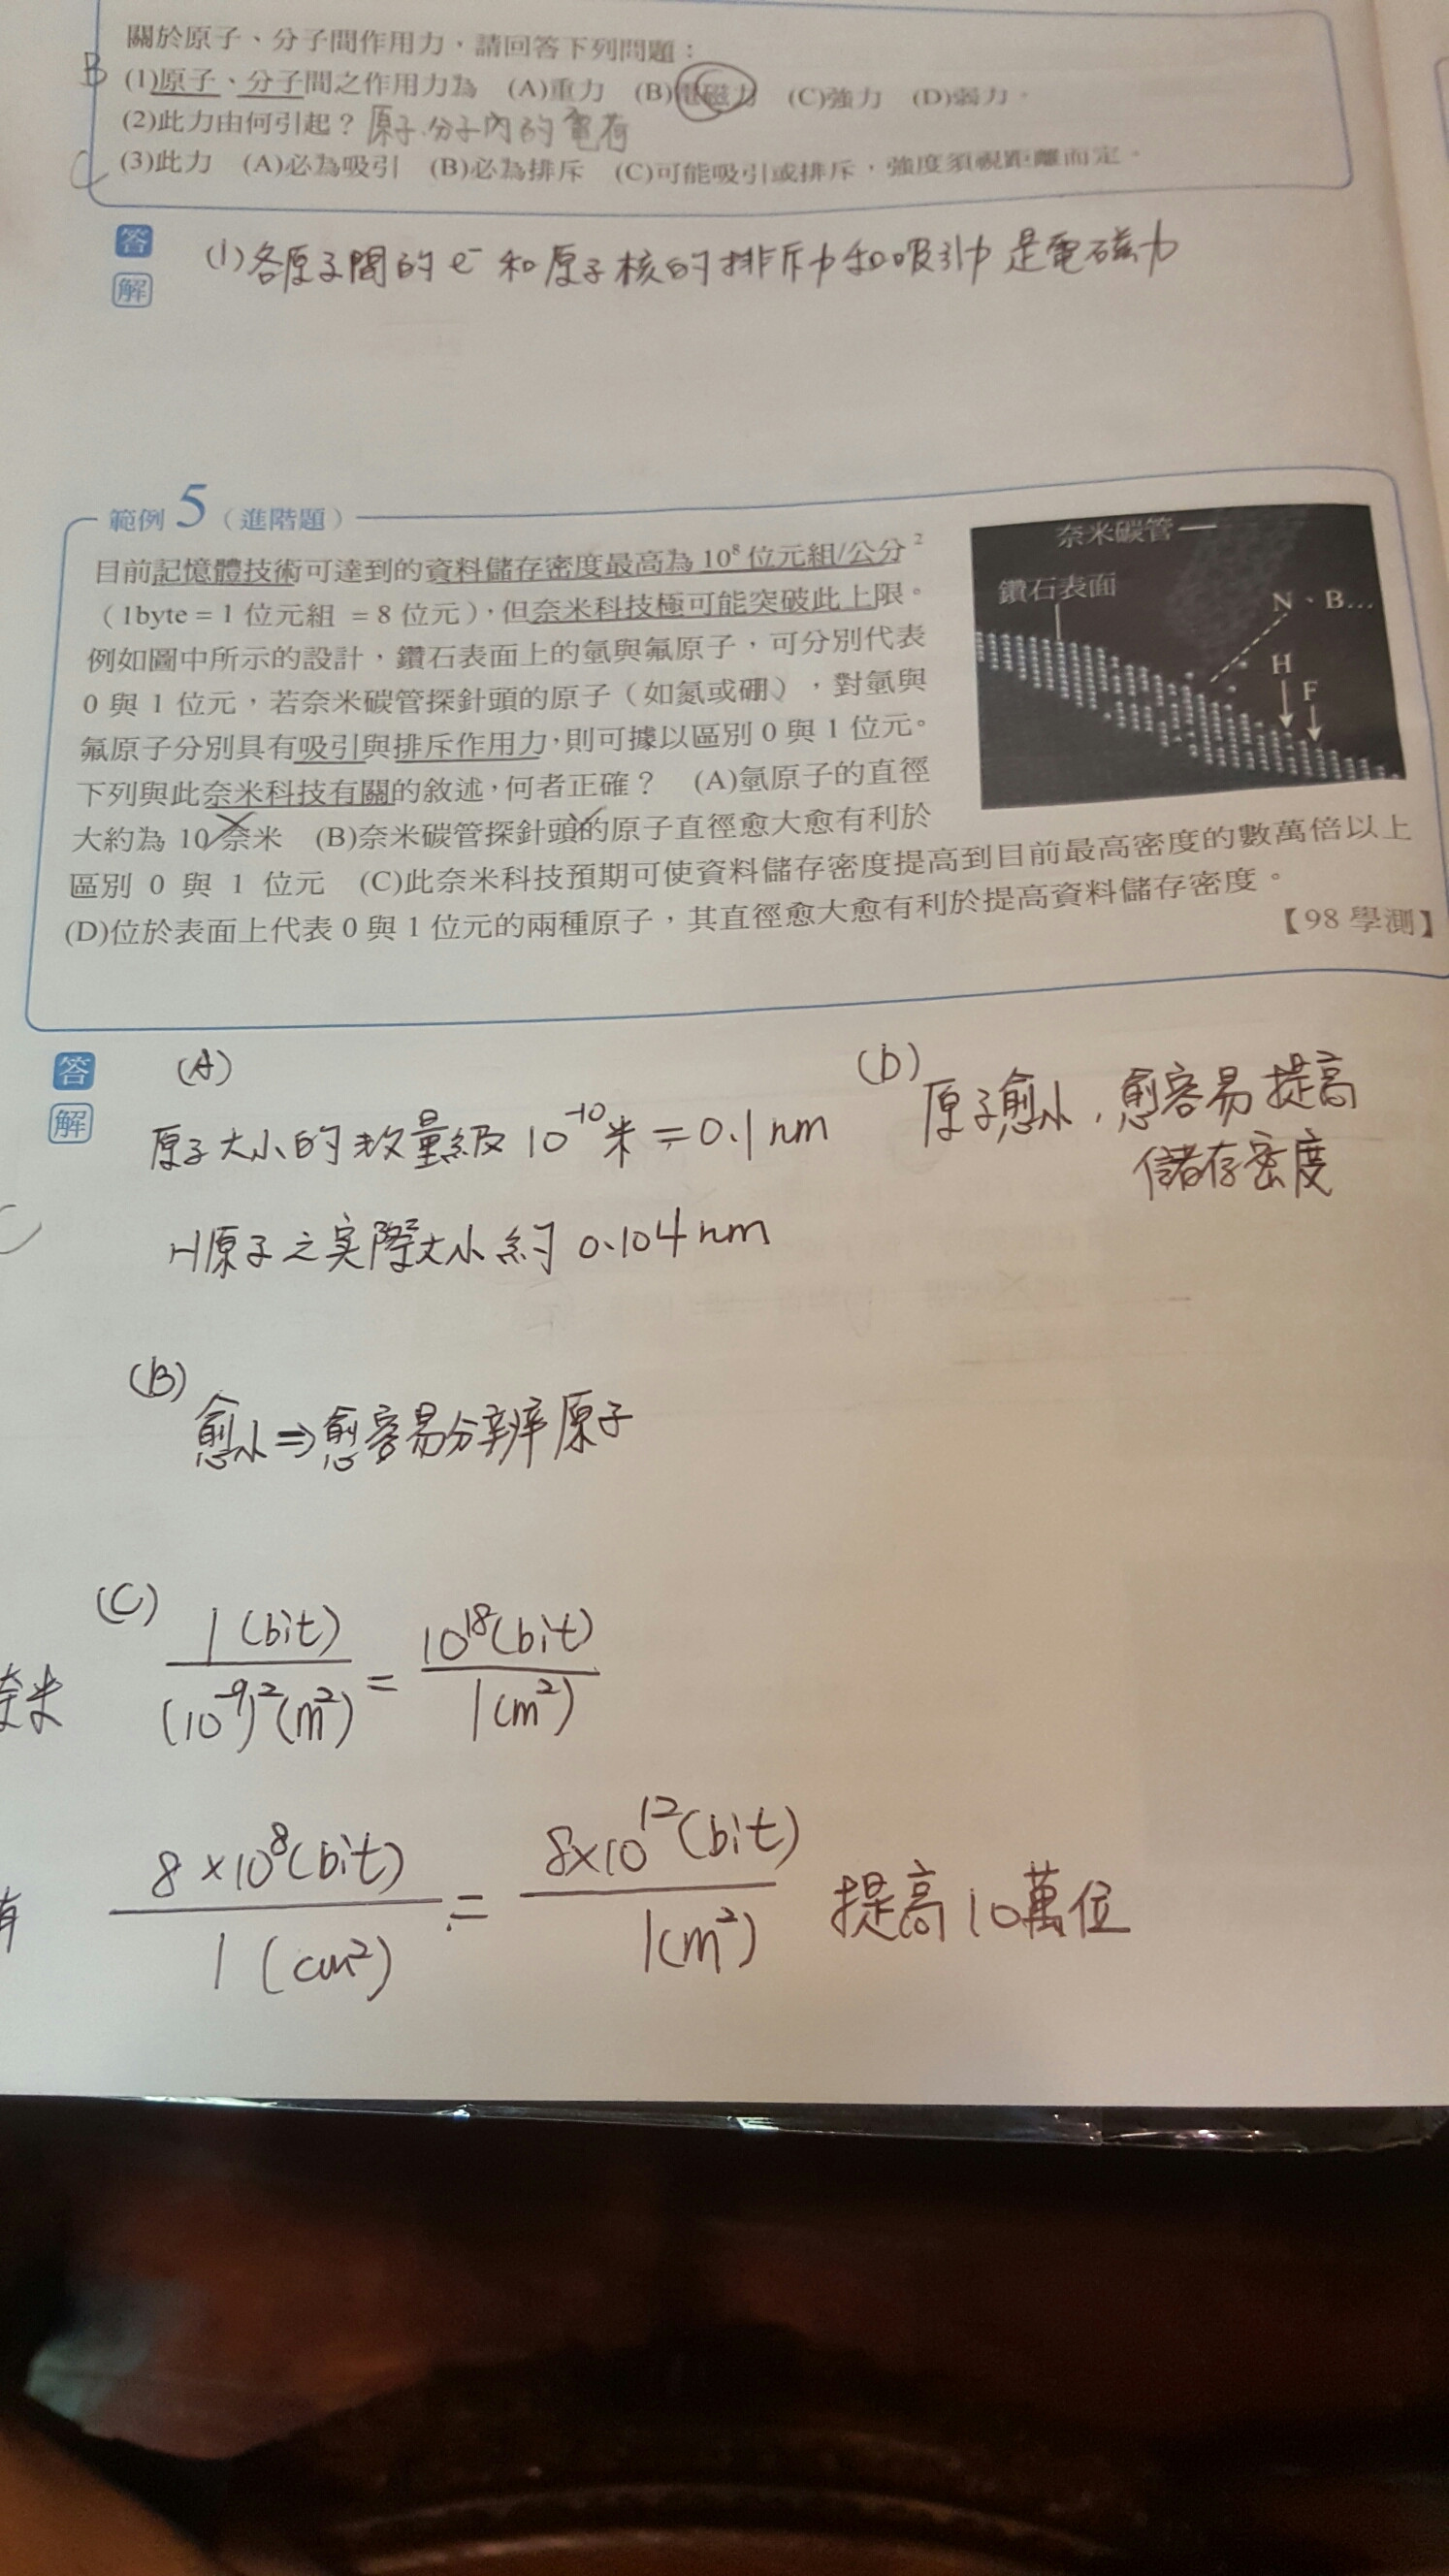 關於原子、分子間作用力，請回答下列問題：
B (1)原子、分子間之作用力為 (A)重力 (B)電磁力 (C)強力 (D)弱力。
(2)此力由何引起？原子、分子內的電荷
C (3)此力 (A)必為吸引 (B)必為排斥 (C)可能吸引或排斥，強度須視距離而定。
答
解
(1)各原子間的e⁻和原子核的排斥力和吸引力是電磁力
範例 5（進階題）
目前記憶體技術可達到的資料儲存密度最高為 10⁸ 位元組/公分²
（1byte = 1 位元組 = 8 位元），但奈米科技極可能突破此上限。
例如圖中所示的設計，鑽石表面上的氫與氟原子，可分別代表
0 與 1 位元，若奈米碳管探針頭的原子（如氮或硼），對氫與
氟原子分別具有吸引與排斥作用力，則可據以區別 0 與 1 位元。
下列與此奈米科技有關的敘述，何者正確？ (A)氫原子的直徑
大約為 10 奈米 (B)奈米碳管探針頭的原子直徑愈大愈有利於
區別 0 與 1 位元 (C)此奈米科技預期可使資料儲存密度提高到目前最高密度的數萬倍以上
(D)位於表面上代表 0 與 1 位元的兩種原子，其直徑愈大愈有利於提高資料儲存密度。
【98 學測】
奈米碳管
鑽石表面
N、B…
H
F
答
解
C
(A)
原子大小的數量級 10⁻¹⁰米=0.1nm
H原子之实際大小約 0.104nm
(D)
原子愈小，愈容易提高
儲存密度
(B)
愈小⇒愈容易分辨原子
(C)
1(bit)/(10⁻⁹)²(m²) = 10¹⁸(bit)/1(m²)
奈米
8×10⁸(bit)/1(cm²) = 8×10¹²(bit)/1(m²) 提高10萬位